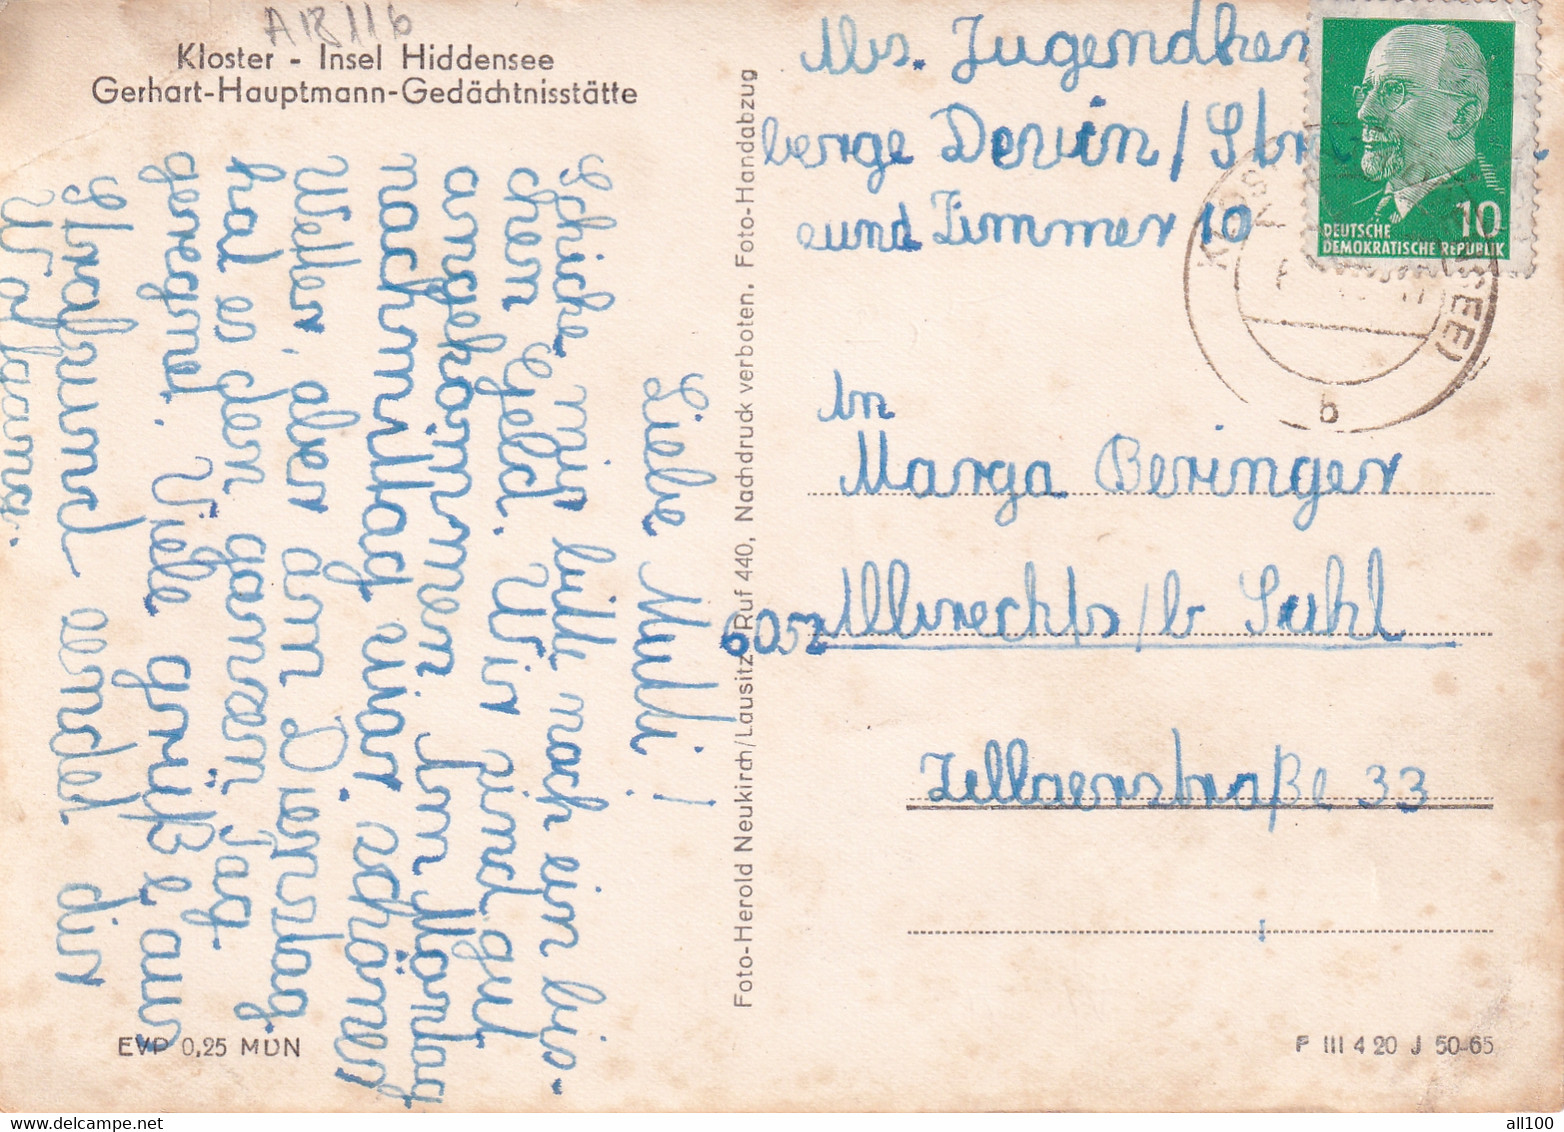 A18116
Kloster - Insel Hiddensee
Gerhart-Hauptmann-Gedächtnisstätte
Liebe Mutti!
Schicke mir bitte noch ein bis-
chen Geld. Wir sind gut
angekommen. Im Montag
nachmittag war schönes
Wetter, aber am Dienstag
hat es den ganzen Tag
geregnet. Viele grüße aus
Stralsund sendet dir
Wolfgang.
EVP 0,25 MDN
Foto-Herold Neukirch/Lausitz, Ruf 440, Nachdruck verboten. Foto-Handabzug
Abs. Jugendher
berge Devin/Stral
sund Zimmer 10
DEUTSCHE
DEMOKRATISCHE REPUBLIK
10
KLOSTER (HIDDENSEE)
b
An
Marga Beringer
6052 Albrechts/b Suhl
Zellaerstraße 33
P III 4 20 J 50-65
all100